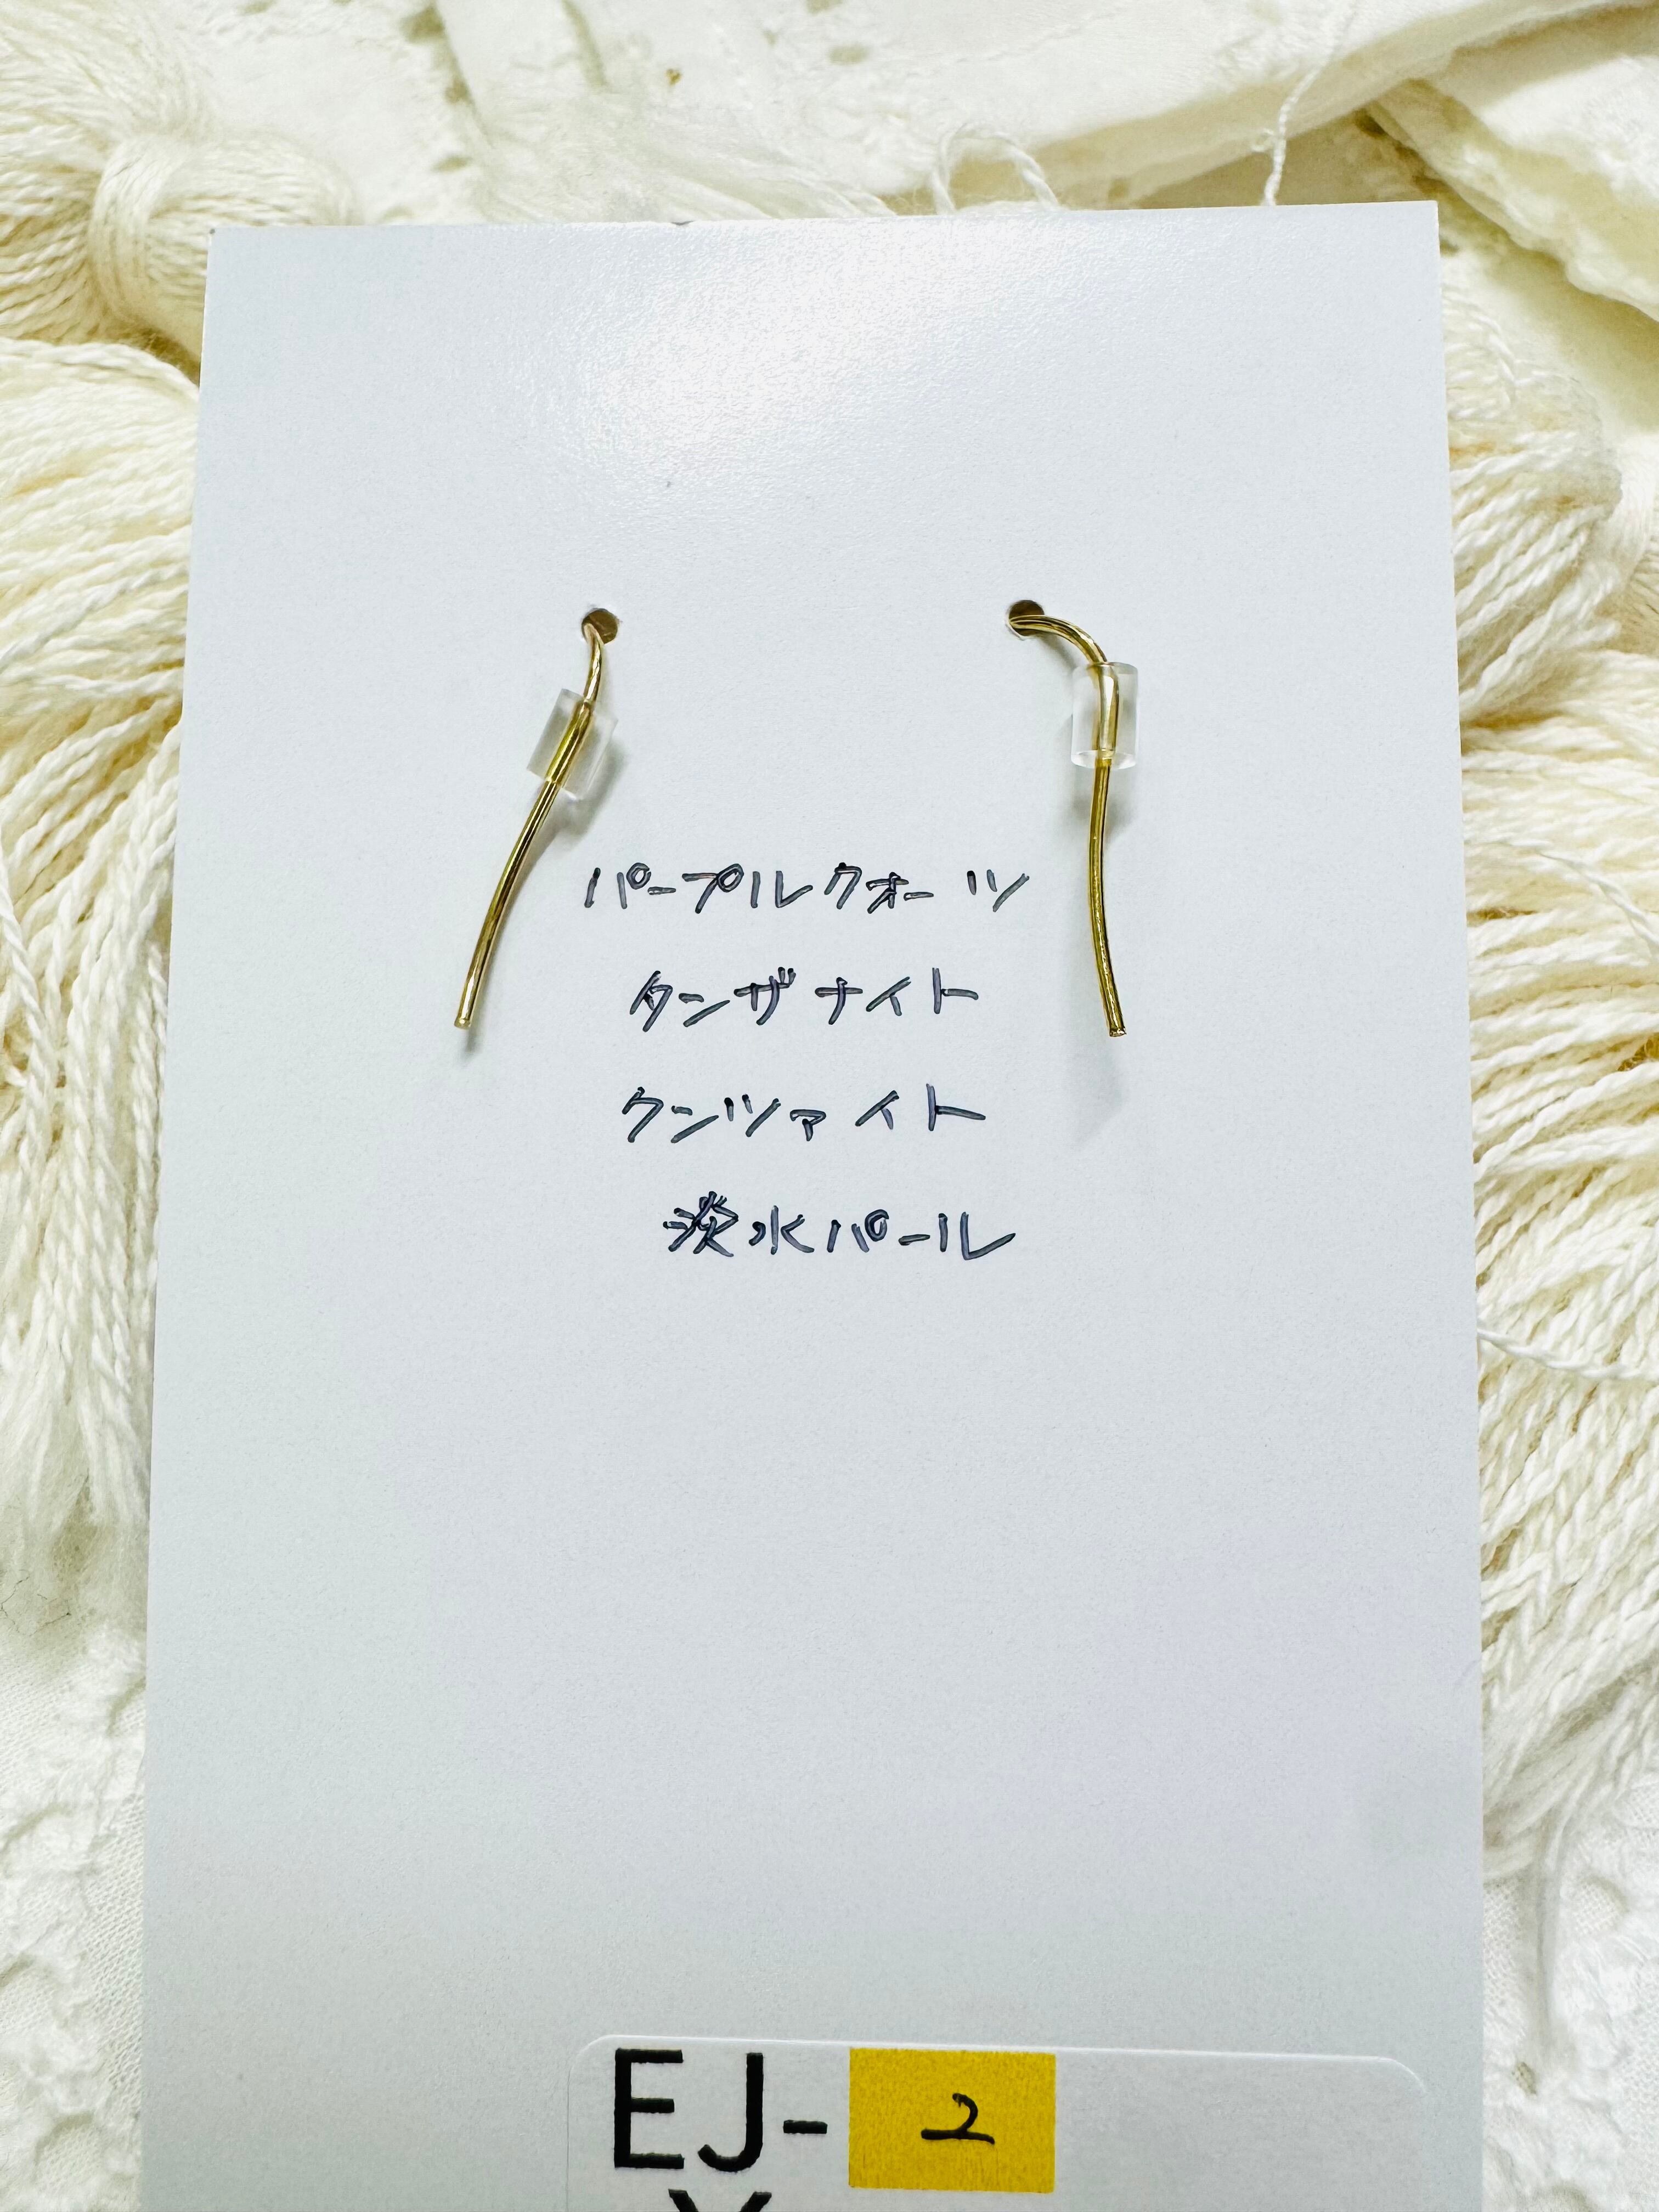 パープルクォーツ
タンザナイト
クンツァイト
淡水パール
EJ-2